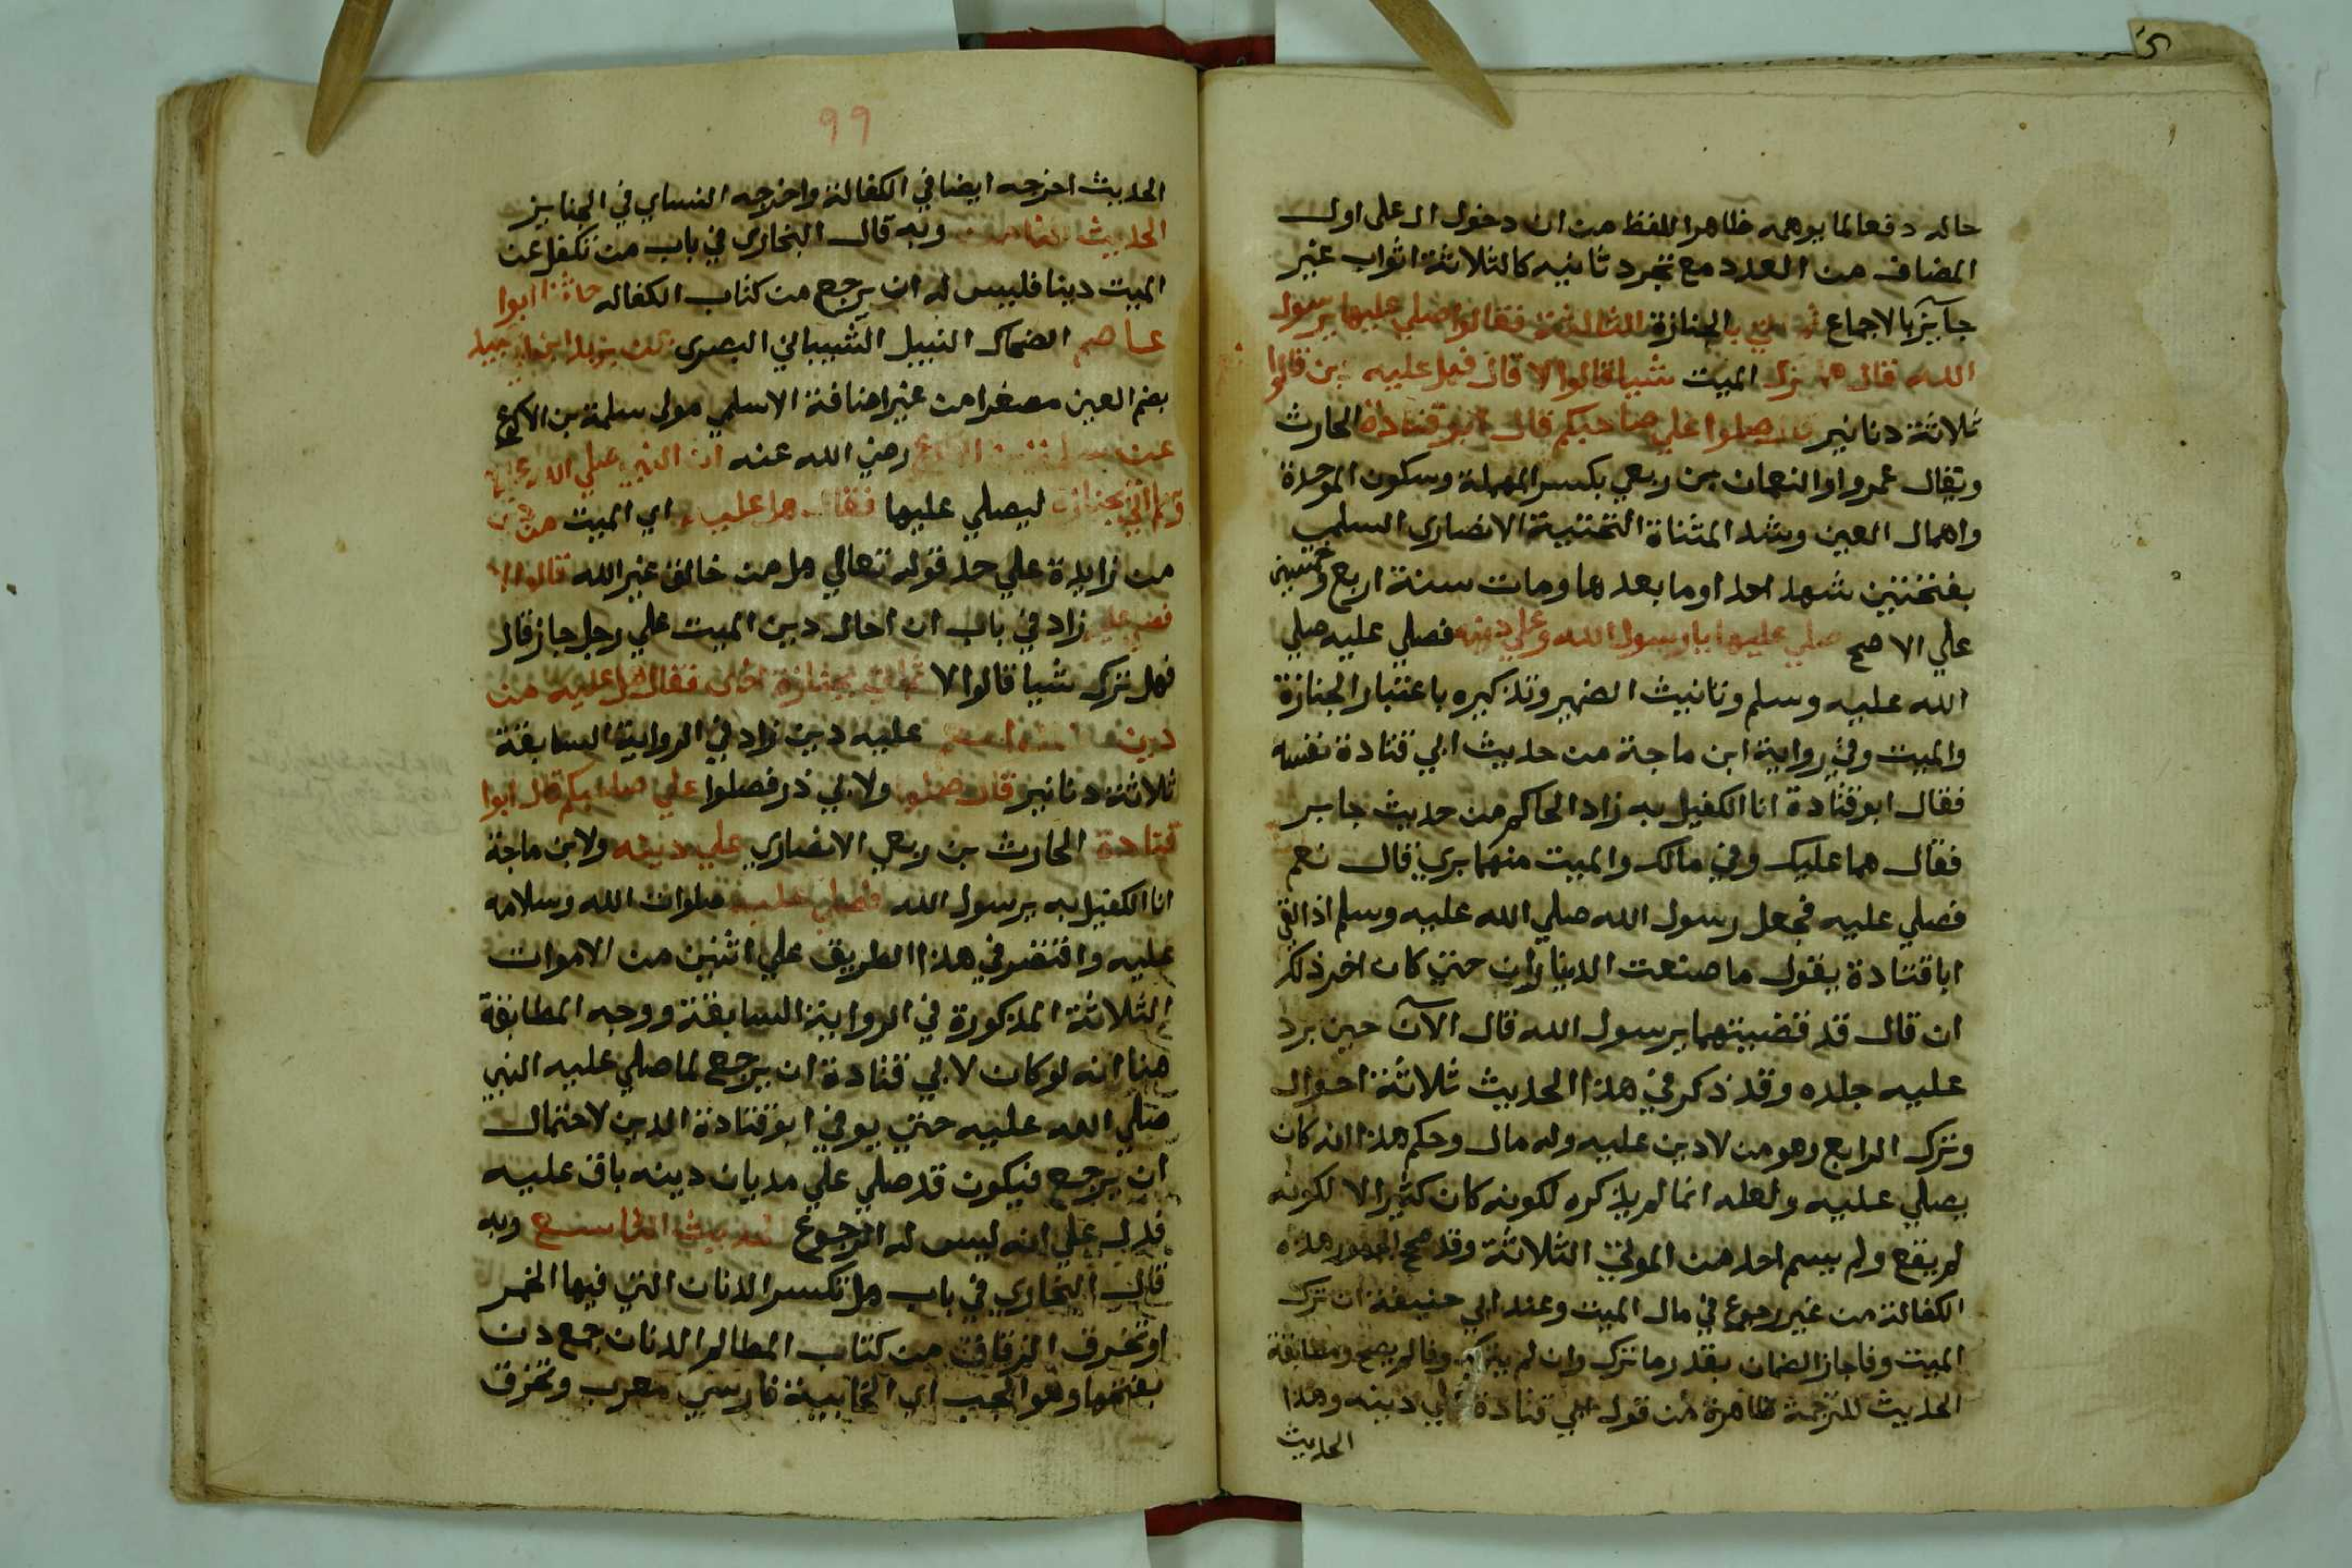 حاله دفعا لما يوهمه ظاهر اللفظ من ان دخول ال على اول
المضاف من العدد مع تجرد ثانيه كالثلاثة اثواب غير
جايز بالاجماع ثم اتي بالجنازة الثالثة فقالوا صلي عليها يرسول
الله قال هل ترك الميت شيا قالوا لا قال فهل عليه دين قالوا
ثلاثة دنانير قال صلوا علي صاحبكم قال ابو قتادة الحارث
ويقال عمرو او النعمان بن ربعي بكسر المهملة وسكون الموحدة
واهمال العين وشد المثناة التحتية الانصاري السلمي
بفتحتين شهد احدا وما بعدها ومات سنة اربع وخمسين
علي الاصح صلي عليها يا رسول الله وعلي دينه فصلي عليه صلي
الله عليه وسلم وتانيث الضمير وتذكيره باعتبار الجنازة
والميت وفي رواية ابن ماجة من حديث ابي قتادة نفسه
فقال ابو قتادة انا الكفيل به زاد الحاكم من حديث جابر
فقال هما عليك وفي مالك والميت منهما بري قال نعم
فصلي عليه فجعل رسول الله صلي الله عليه وسلم اذا لقي
ابا قتادة يقول ما صنعت الديناران حتي كان اخر ذلك
ان قال قد قضيتهما يرسول الله قال الآن حين برد
عليه جلده وقد ذكر في هذا الحديث ثلاثة احوال
وترك الرابع وهو من لا دين عليه وله مال وحكم هذا انه كان
يصلي عليه ولعله انما لم يذكره لكونه كان كثيرا لا لكونه
لم يقع ولم يسم احد من الموتي الثلاثة وقد صحح الجمهور هذه
الكفالة من غير رجوع في مال الميت وعند ابي حنيفة ان ترك
الميت وفا جاز الضمان بقدر ما ترك وان لم يترك وفا لم يصح ومطابقة
الحديث للترجمة ظاهرة من قول ابي قتادة علي دينه وهذا
الحديث
٩٩
الحديث اخرجه ايضا في الكفالة واخرجه النساي في الجنايز
الحديث الثامن وبه قال البخاري في باب من تكفل عن
الميت دينا فليس له ان يرجع من كتاب الكفاله حدثنا ابوا
عاصم الضحاك النبيل الشيباني البصري عن يزيد ابن ابي عبيد
بضم العين مصغرا من غير اضافة الاسلمي مولي سلمة بن الاكوع
عن سلمة بن الاكوع رضي الله عنه ان النبي صلي الله عليه
وسلم اتي بجنازة ليصلي عليها فقال هل عليه اي الميت من دين
من زايدة علي حد قوله تعالي هل من خالق غير الله قالوا لا
فصلي عليه زاد في باب ان احال دين الميت علي رجل جاز قال
فهل ترك شيا قالوا لا ثم اتي بجنازة اخري فقال هل عليه من
دين قالوا نعم عليه دين زاد في الرواية السابقة
ثلاثة دنانير قال صلوا ولابي ذر فصلوا علي صاحبكم قال ابوا
قتادة الحارث بن ربعي الانصاري علي دينه ولابن ماجة
انا الكفيل به يرسول الله فصلي عليه صلوات الله وسلامه
عليه واقتصر في هذا الطريق علي اثنين من الاموات
الثلاثة المذكورة في الرواية السابقة ووجه المطابقة
هنا انه لو كان لابي قتادة ان يرجع لما صلي عليه النبي
صلي الله عليه حتي يوفي ابو قتادة الدين لاحتمال
ان يرجع فيكون قد صلي علي مديان دينه باق عليه
فدل علي انه ليس له الرجوع الحديث التاسع وبه
قال البخاري في باب هل تكسر الدنان التي فيها الخمر
او تخرق الزقاق من كتاب المظالم الدنان جمع دن
بفتحها وهو الحب اي الخابية فارسي معرب وتخرق